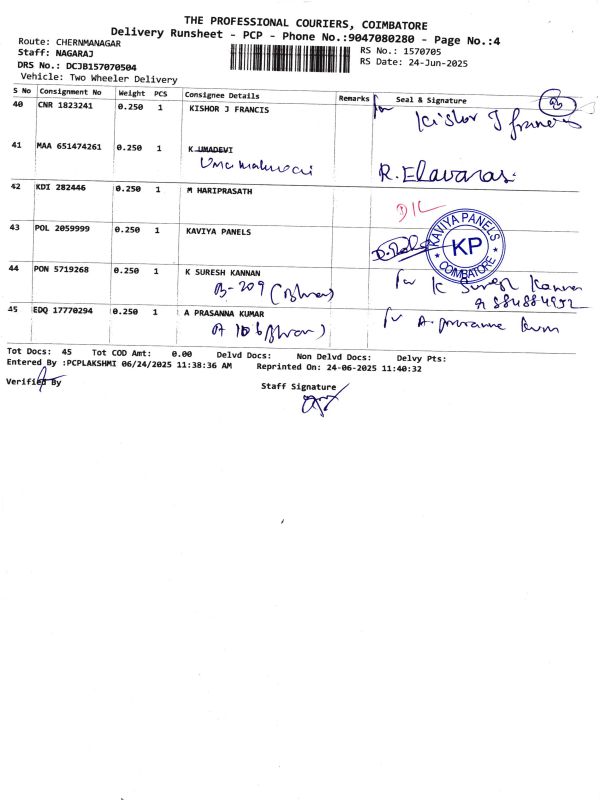 THE PROFESSIONAL COURIERS, COIMBATORE
Delivery Runsheet - PCP - Phone No.:9047080280 - Page No.:4
Route: CHERNMANAGAR
Staff: NAGARAJ
RS No.: 1570705
DRS No.: DCJB157070504
RS Date: 24-Jun-2025
Vehicle: Two Wheeler Delivery
S No Consignment No Weight PCS Consignee Details Remarks Seal & Signature
40 CNR 1823241 0.250 1 KISHOR J FRANCIS
for Kishor J francis
41 MAA 651474261 0.250 1 K UMADEVI
R.Elavarasi
42 KDI 282446 0.250 1 M HARIPRASATH
D/L
43 POL 2059999 0.250 1 KAVIYA PANELS
KAVIYA PANELS
KP
COIMBATORE
44 PON 5719268 0.250 1 K SURESH KANNAN
B-209
for K Suresh Kannan
45 EDQ 17770294 0.250 1 A PRASANNA KUMAR
for A.prasanna kum
Tot Docs: 45 Tot COD Amt: 0.00 Delvd Docs: Non Delvd Docs: Delvy Pts:
Entered By :PCPLAKSHMI 06/24/2025 11:38:36 AM Reprinted On: 24-06-2025 11:40:32
Verified By
Staff Signature